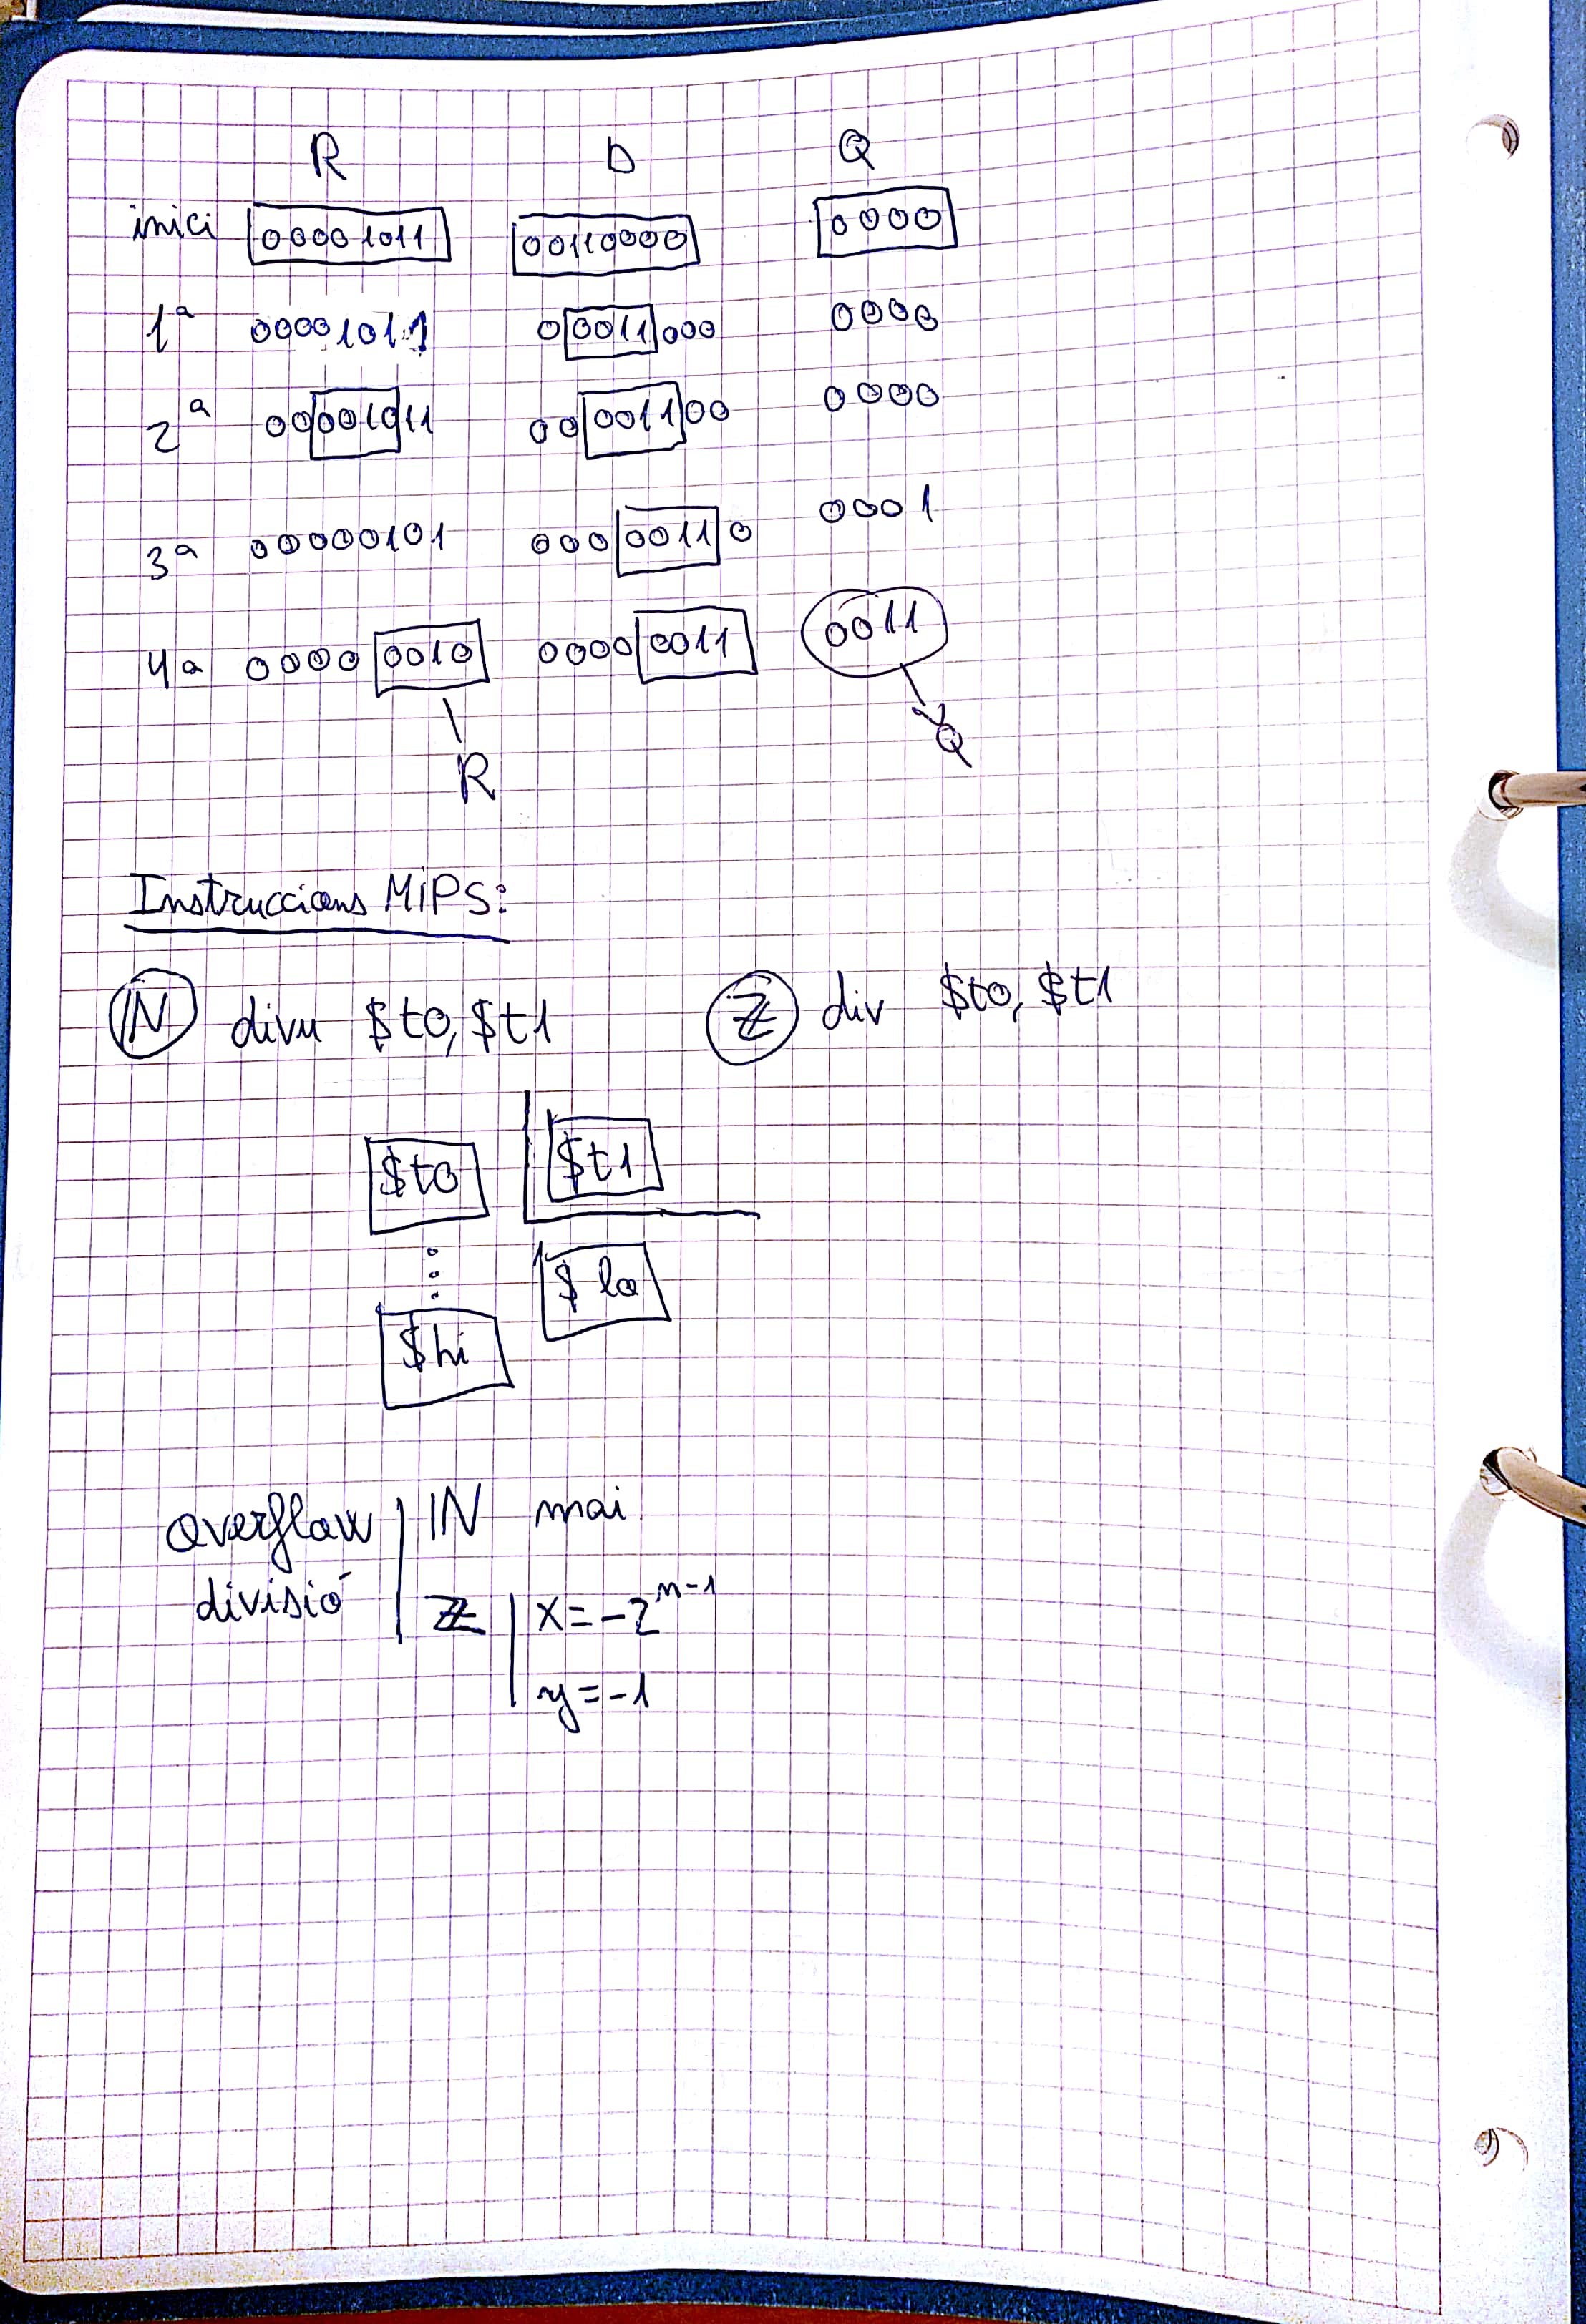 R D Q
inici 00001011 00110000 0000
1ª 00001011 00011000 0000
2ª 00001011 00001100 0000
3ª 00000101 00000110 0001
4ª 00000010 00000011 0011
R Q
Instruccions MIPS:
ℕ divu $t0, $t1 ℤ div $t0, $t1
$t0 $t1
$lo
$hi
overflow ℕ mai
divisió ℤ x=-2^{n-1}
y=-1